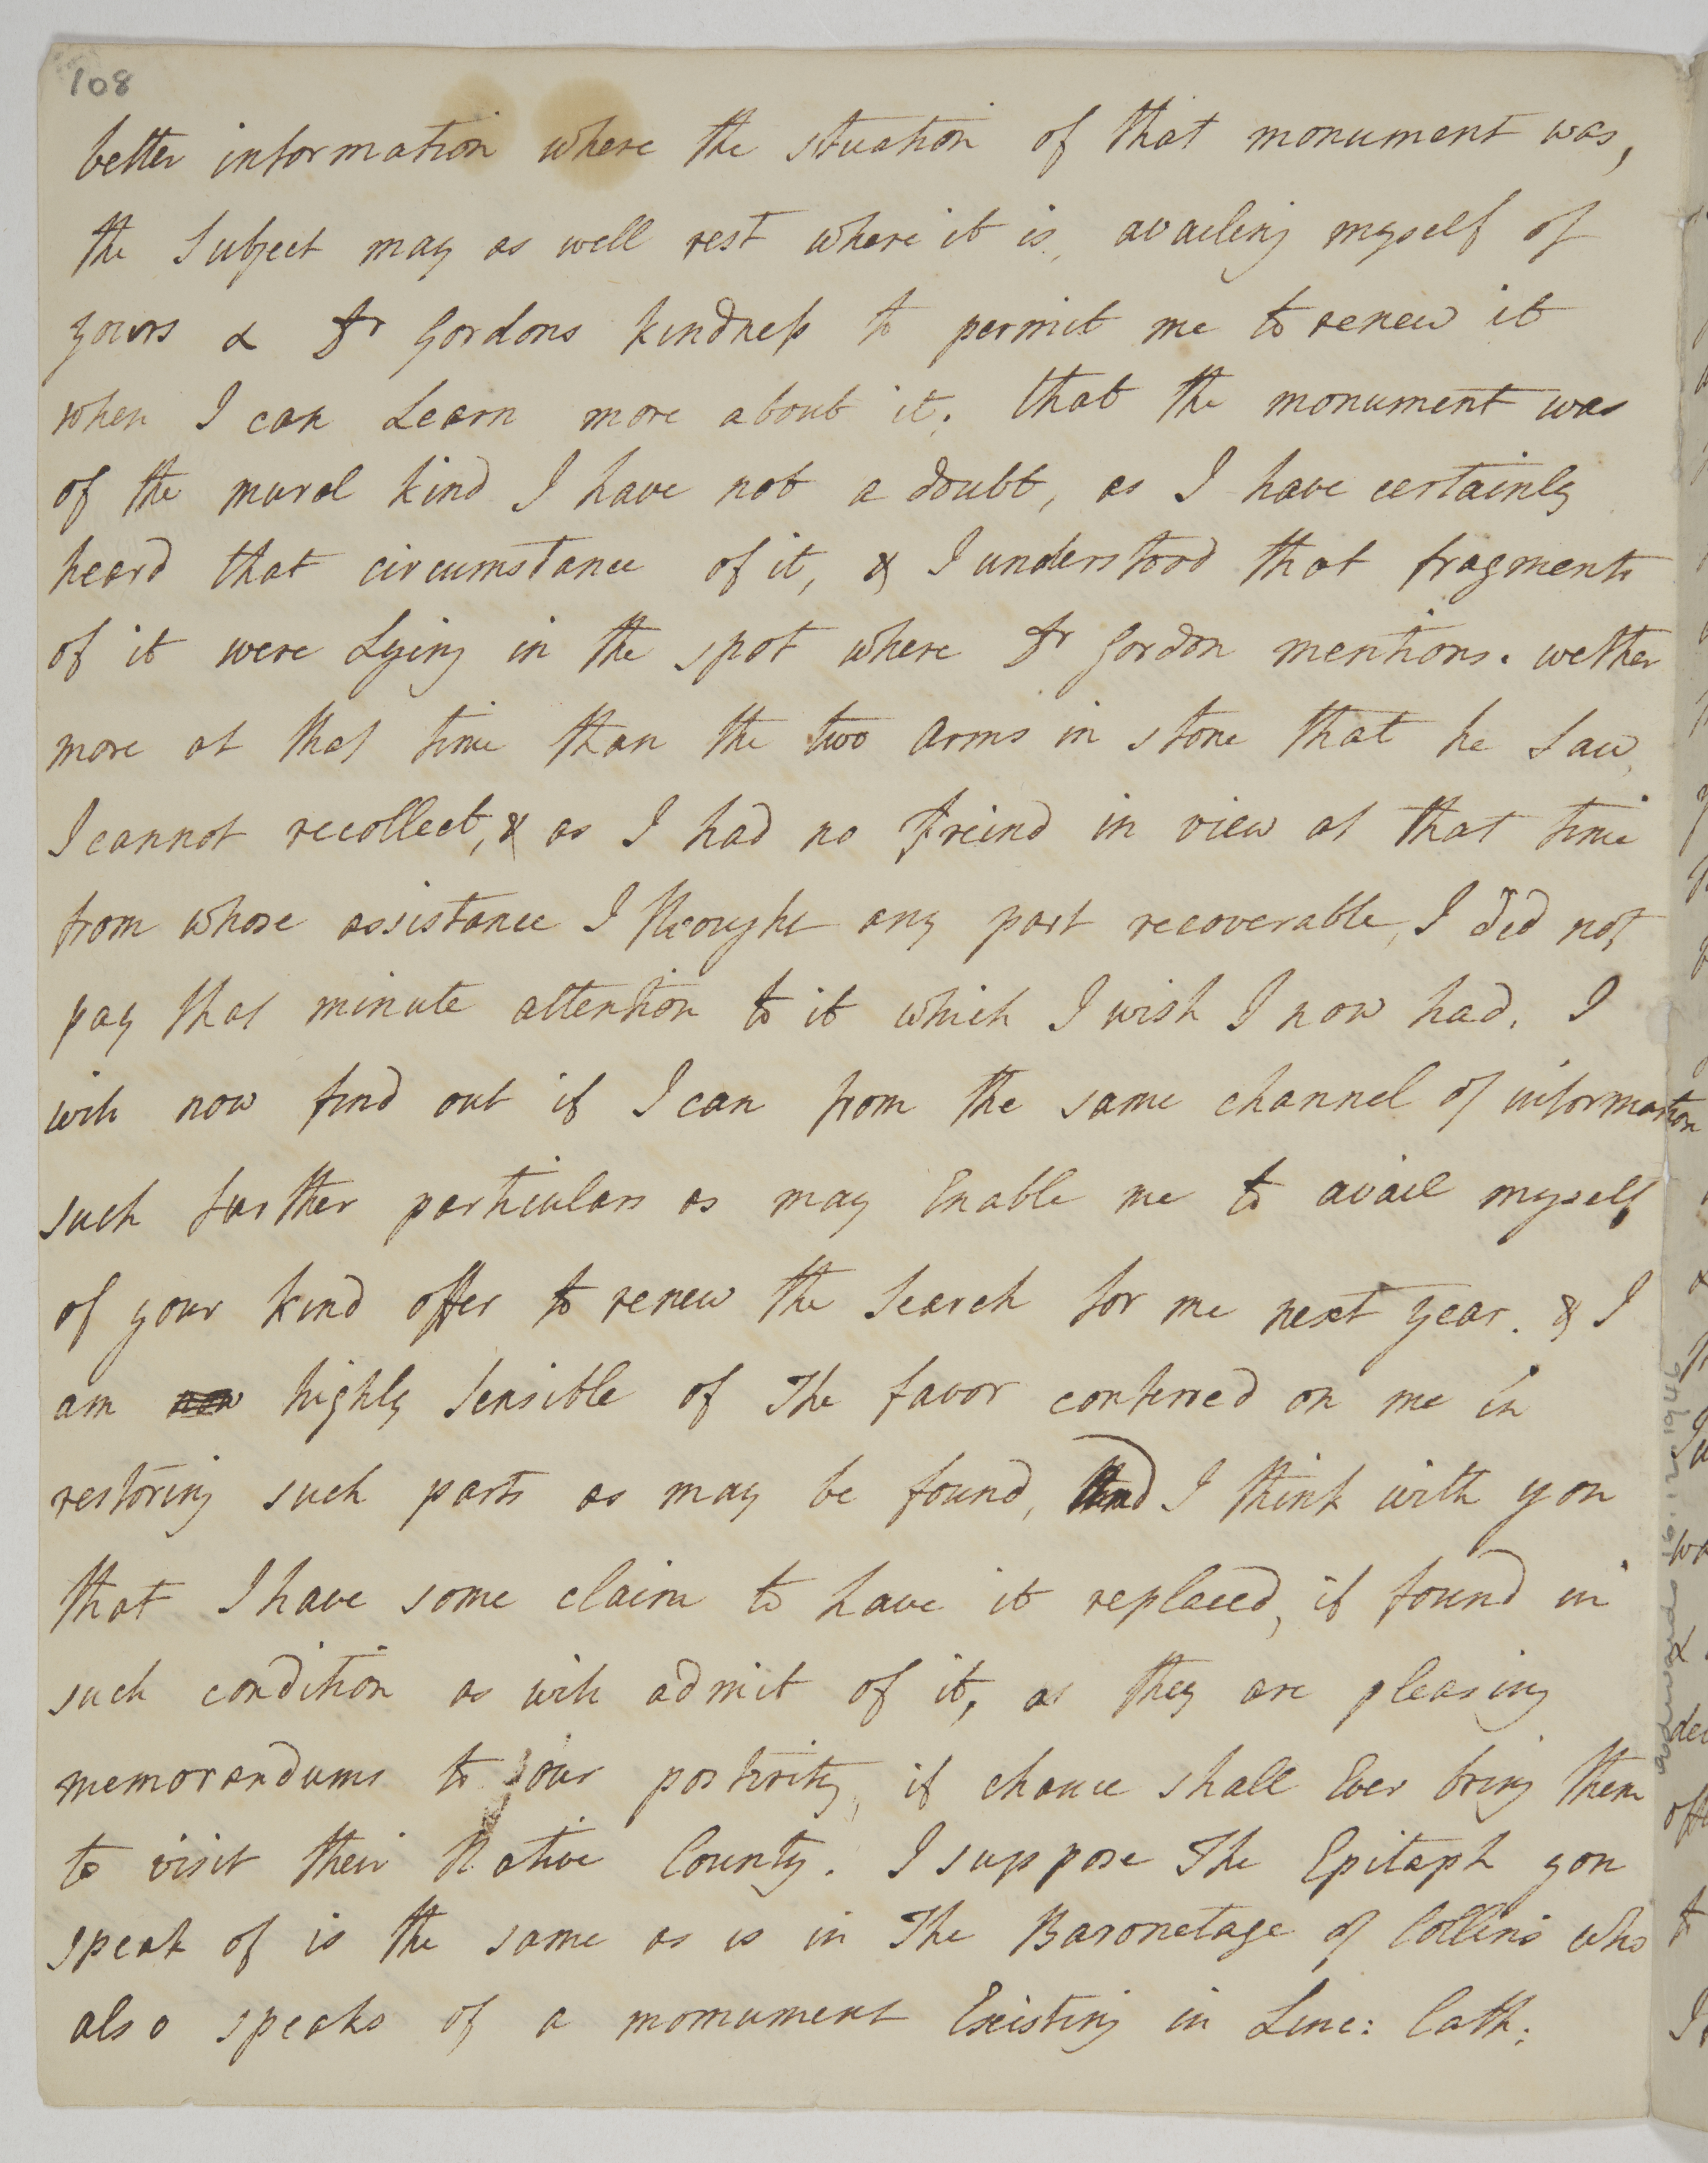 108
better information where the situation of that monument was,
the Subject may as well rest where it is, availing myself of
yours & Dr Gordons kindness to permit me to renew it
when I can Learn more about it. that the monument was
of the mural kind I have not a doubt, as I have certainly
heard that circumstance of it, & I understood that fragments
of it were Lying in the spot where Dr Gordon mentions. wether
more at that time than the two arms in stone that he Saw,
I cannot recollect, & as I had no freind in view at that time
from whose assistance I thought any part recoverable, I did not
pay that minute attention to it which I wish I now had. I
will now find out if I can from the same channel of information
such further particulars as may Enable me to avail myself
of your kind offer to renew the Search for me next year. & I
am now highly Sensible of The favor conferred on me in
restoring such parts as may be found, And I think with you
that I have some claim to have it replaced, if found in
such condition as will admit of it, as they are pleasing
memorandums to our posterity, if chance shall Ever bring them
to visit their Native County. I suppose The Epitaph you
speak of is the same as is in The Baronetage of Collins who
also speaks of a momument Existing in Linc: Cath: